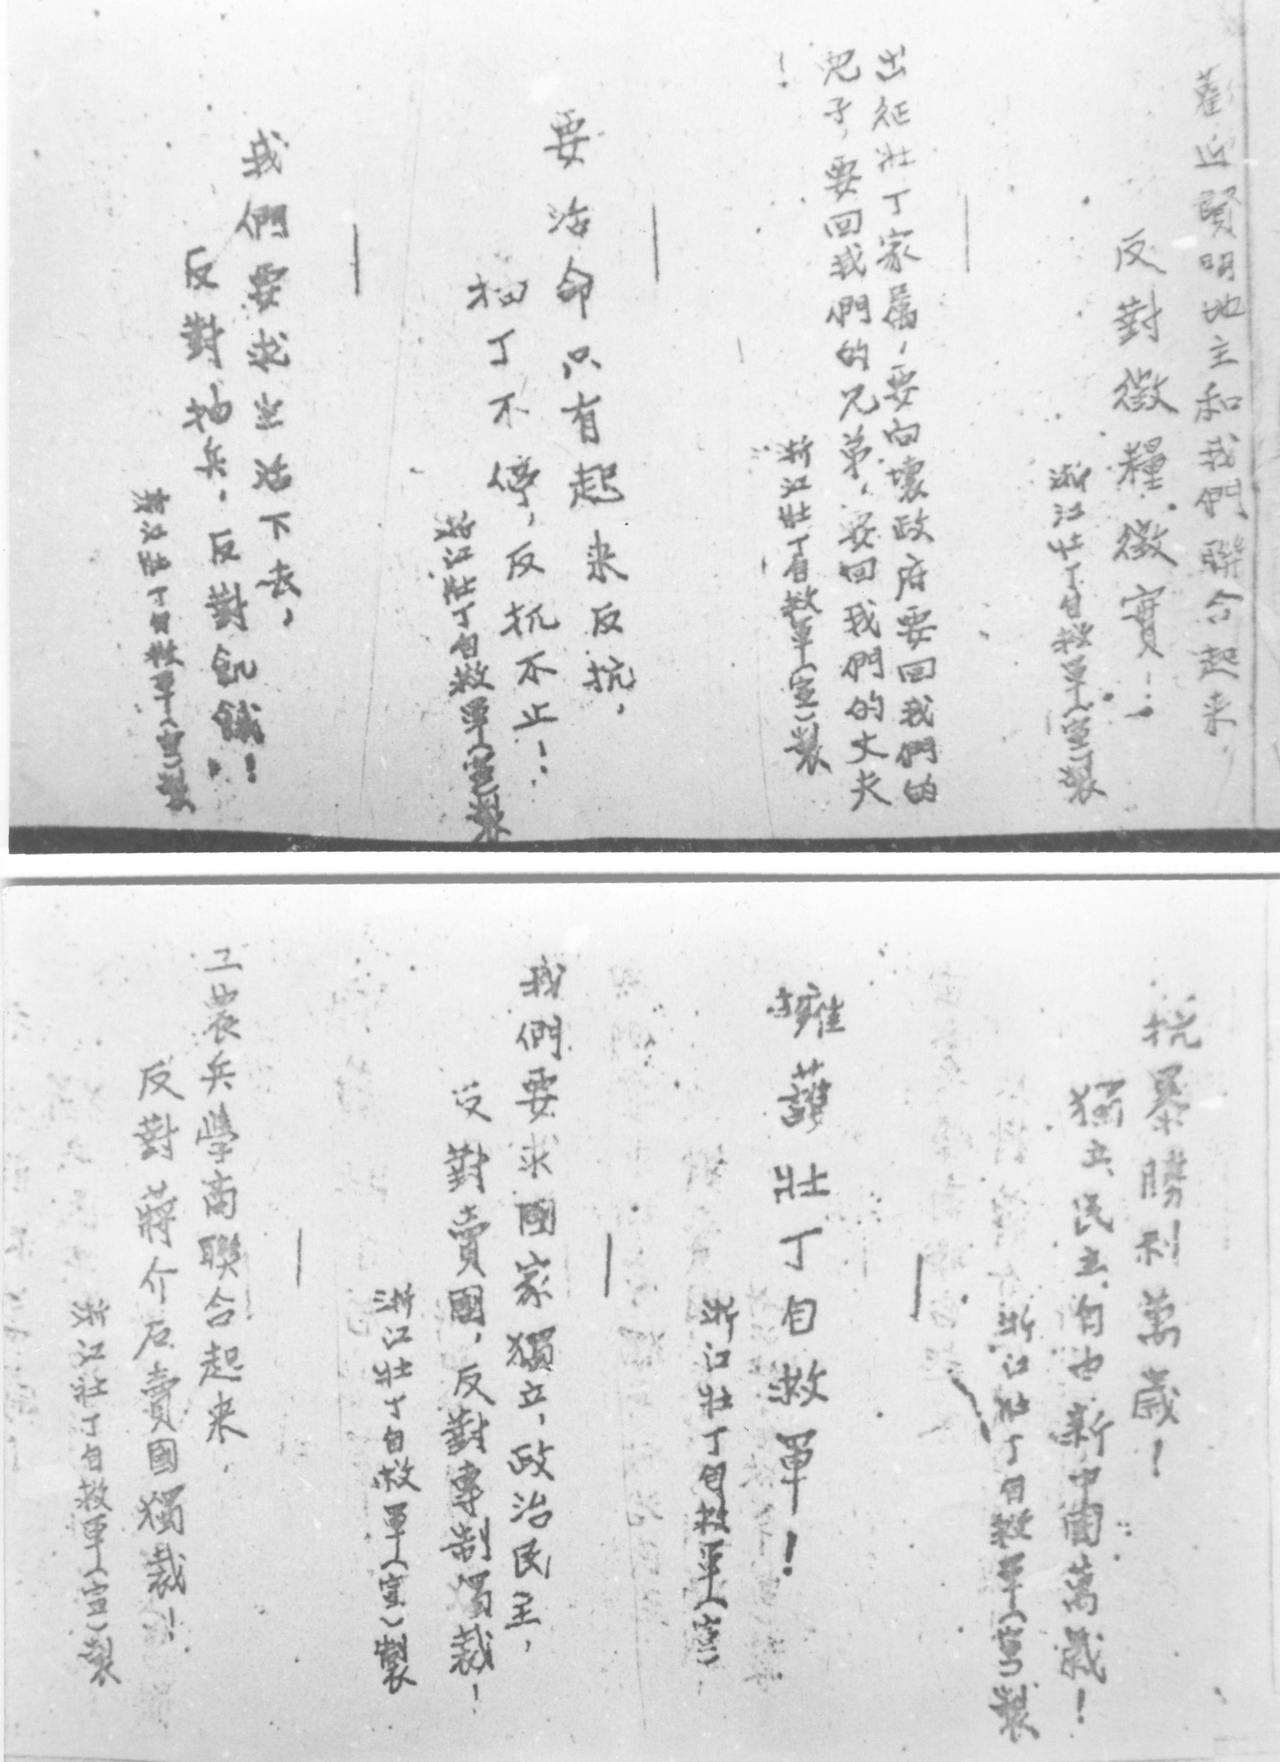 歡迎賢明地主和我們聯合起来
反對徵糧徵實！
浙江壯丁自救軍(宣)製
出征壯丁家属，要向壞政府要回我們的
兒子，要回我們的兄弟，要回我們的丈夫
！
浙江壯丁自救軍(宣)製
要活命只有起来反抗，
抽丁不停，反抗不止！
浙江壯丁自救軍(宣)製
我們要求生活下去，
反對抽兵，反對飢餓！
浙江壯丁自救軍(宣)製
抗暴勝利萬歲！
獨立、民主、自由新中國萬歲！
浙江壯丁自救軍(宣)製
擁護壯丁自救軍！
浙江壯丁自救軍(宣)
我們要求國家獨立，政治民主，
反對賣國，反對專制獨裁！
浙江壯丁自救軍(宣)製
工農兵學商聯合起来，
反對蔣介石賣國獨裁！
浙江壯丁自救軍(宣)製